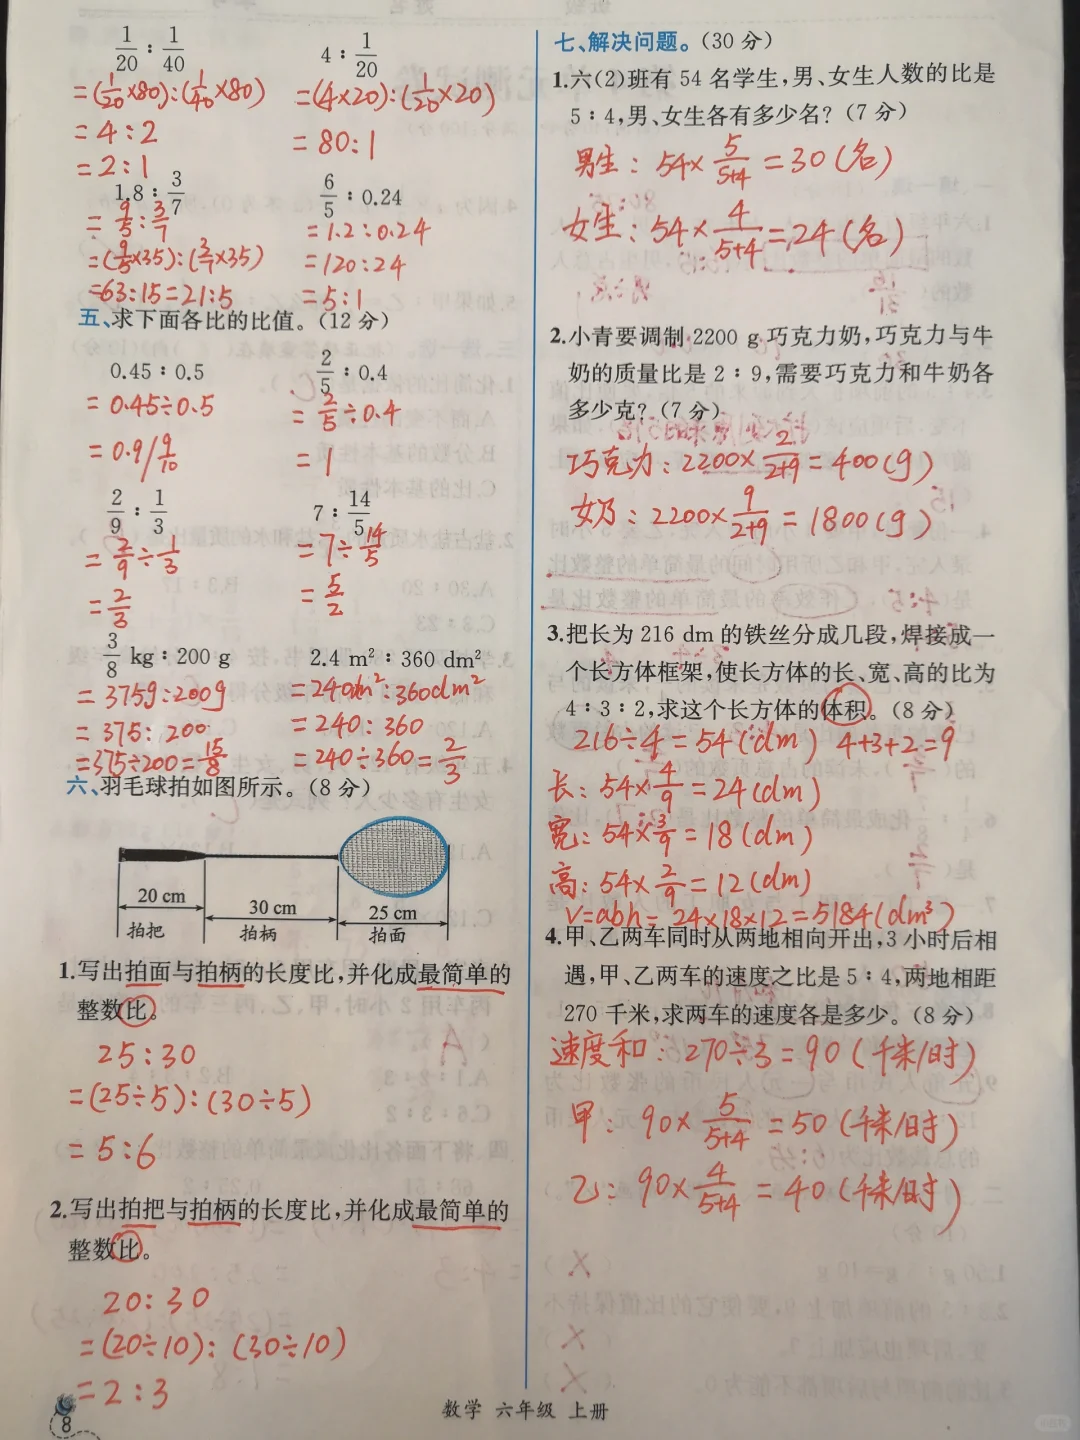 1/20 : 1/40
=(1/20×80):(1/40×80)
=4:2
=2:1
4 : 1/20
=(4×20):(1/20×20)
=80:1
1.8 : 3/7
=9/5:3/7
=(9/5×35):(3/7×35)
=63:15=21:5
6/5 : 0.24
=1.2:0.24
=120:24
=5:1
五、求下面各比的比值。(12分)
0.45 : 0.5
=0.45÷0.5
=0.9/9/10
2/5 : 0.4
=2/5÷0.4
=1
2/9 : 1/3
=2/9÷1/3
=2/3
7 : 14/5
=7÷14/5
=5/2
3/8 kg : 200 g
=375g:200g
=375:200
=375÷200=15/8
2.4 m² : 360 dm²
=240dm²:360dm²
=240:360
=240÷360=2/3
六、羽毛球拍如图所示。(8分)
20 cm 30 cm 25 cm
拍把 拍柄 拍面
1.写出拍面与拍柄的长度比,并化成最简单的
整数比。
25:30
=(25÷5):(30÷5)
=5:6
2.写出拍把与拍柄的长度比,并化成最简单的
整数比。
20:30
=(20÷10):(30÷10)
=2:3
七、解决问题。(30分)
1.六(2)班有54名学生,男、女生人数的比是
5:4,男、女生各有多少名?(7分)
男生:54×5/5+4=30(名)
女生:54×4/5+4=24(名)
2.小青要调制2200 g巧克力奶,巧克力与牛
奶的质量比是2:9,需要巧克力和牛奶各
多少克?(7分)
巧克力:2200×2/2+9=400(g)
女奶:2200×9/2+9=1800(g)
3.把长为216 dm的铁丝分成几段,焊接成一
个长方体框架,使长方体的长、宽、高的比为
4:3:2,求这个长方体的体积。(8分)
216÷4=54(dm) 4+3+2=9
长:54×4/9=24(dm)
宽:54×3/9=18(dm)
高:54×2/9=12(dm)
V=abh=24×18×12=5184(dm³)
4.甲、乙两车同时从两地相向开出,3小时后相
遇,甲、乙两车的速度之比是5:4,两地相距
270千米,求两车的速度各是多少。(8分)
速度和:270÷3=90(千米/时)
甲:90×5/5+4=50(千米/时)
乙:90×4/5+4=40(千米/时)
8
数学 六年级 上册